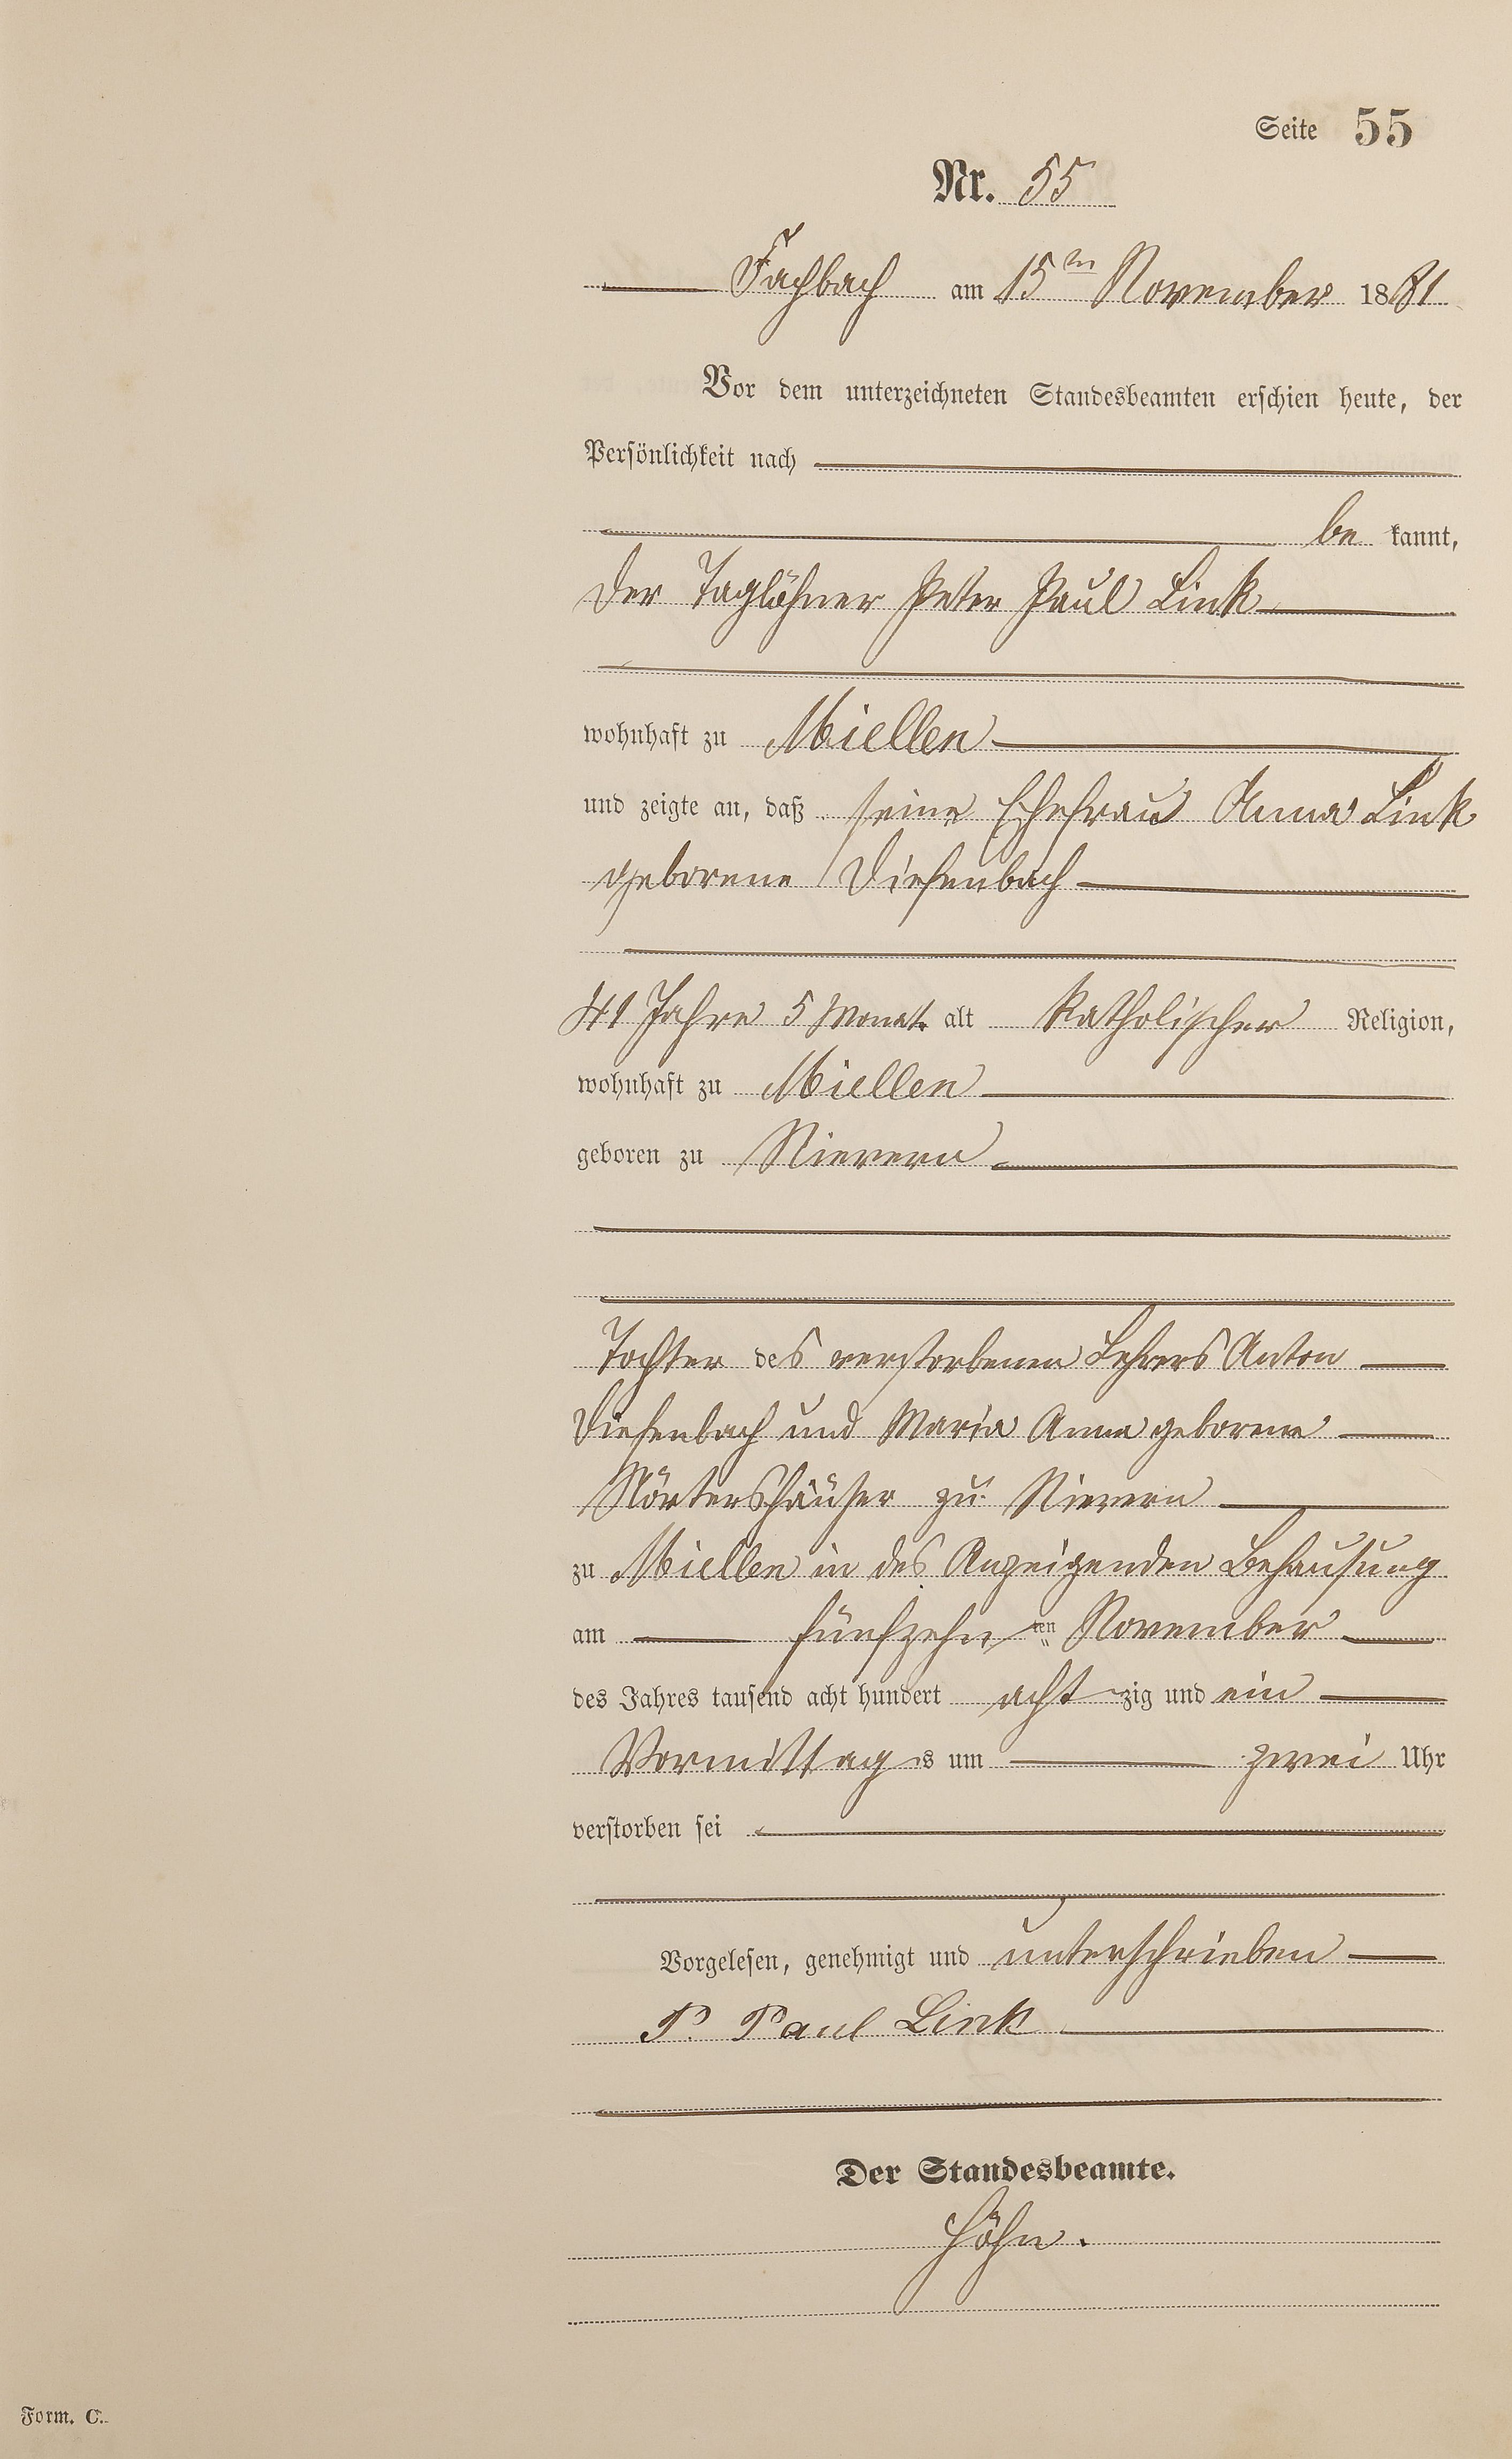 Seite 55
Nr. 55
Fachbach am 15ten November 1881
Vor dem unterzeichneten Standesbeamten erschien heute, der
Persönlichkeit nach
be kannt,
der Taglöhner Peter Paul Link
wohnhaft zu Miellen
und zeigte an, daß seine Ehefrau Anna Link
geborene Diefenbach
41 Jahre 5 Monate alt katholischer Religion,
wohnhaft zu Miellen
geboren zu Nievern
Tochter des verstorbenen Lehrers Anton
Diefenbach und Maria Anna geborene
Nörtershäuser zu Nievern
zu Miellen in des Anzeigenden Behausung
am fünfzehnten November
des Jahres tausend acht hundert achtzig und ein
Vormittags um zwei Uhr
verstorben sei
Vorgelesen, genehmigt und unterschrieben
P. Paul Link
Der Standesbeamte.
Höhn.
Form. C.